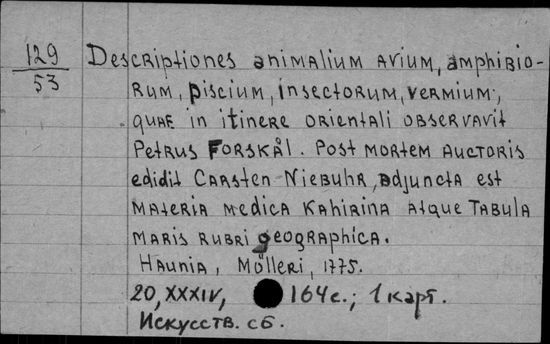 129
53
Descriptiones animalium avium, amphibio-
rum, piscium, insectorum, vermium;
quae in itinere orientali observavit
Petrus Forskål. Post mortem auctoris
edidit Carsten Niebuhr, adjuncta est
materia medica Kahirina atque tabula
maris rubri geographica.
Haunia, Mölleri, 1775.
20, XXXIV, 164 с.; 1 карт.
Искусств. сб.